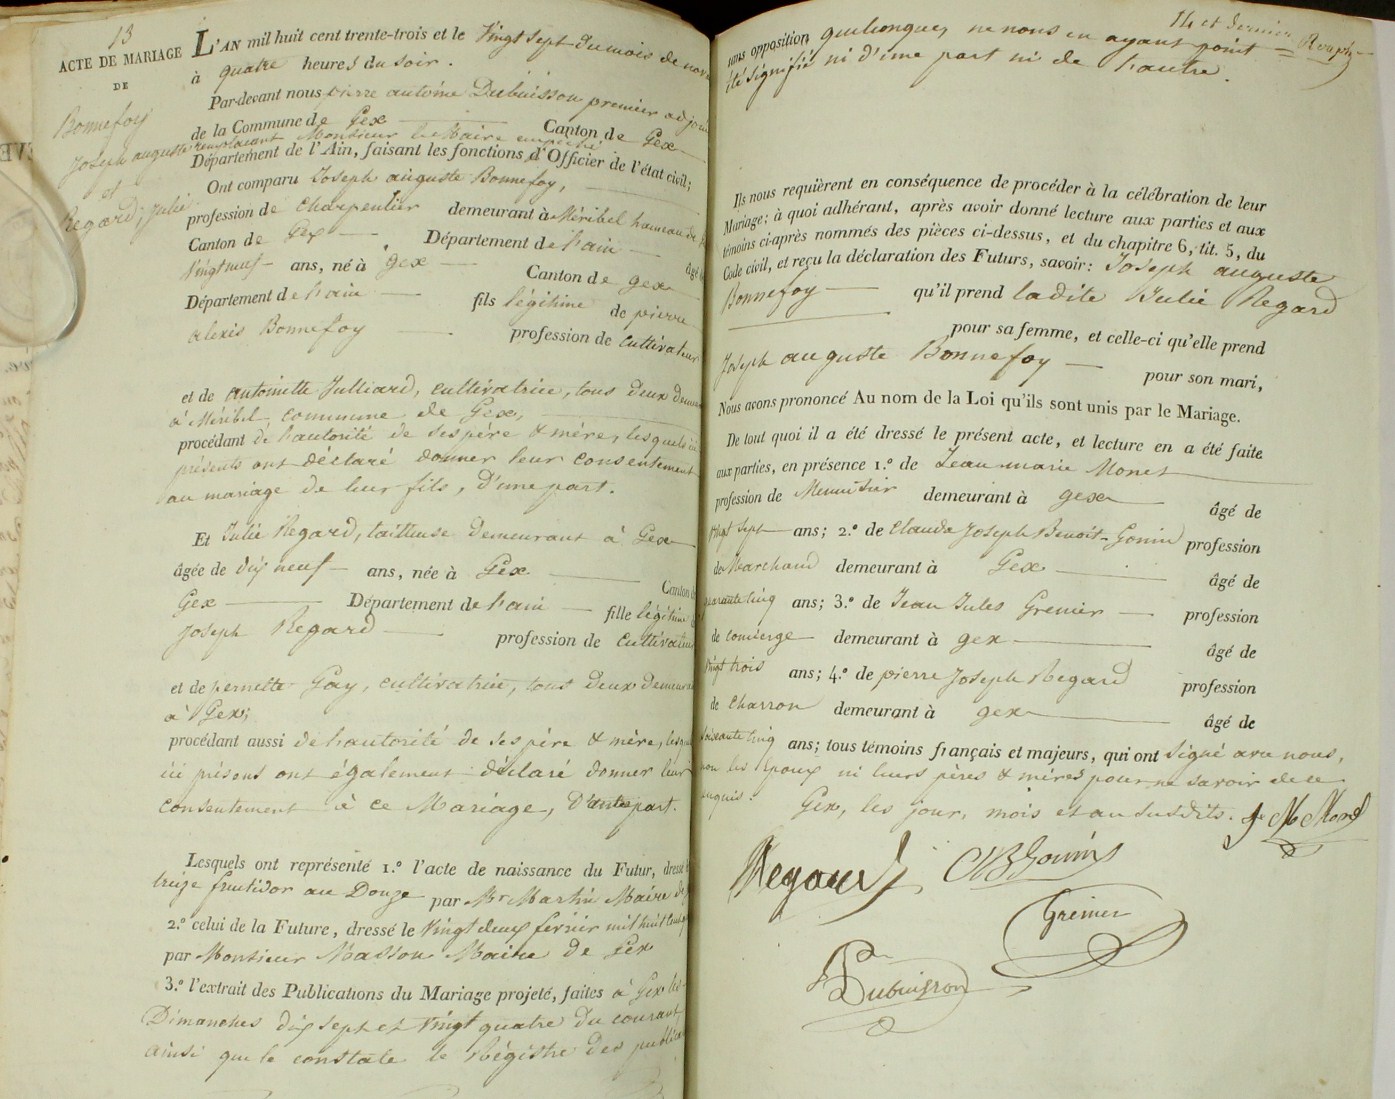 13
ACTE DE MARIAGE
DE
Bonnefoy
Joseph auguste
et
Regard, Julie
L'AN mil huit cent trente-trois et le Vingt sept du mois de nov
à quatre heures du soir.
Par-devant nous pierre antoine Dubuisson premier adjoin
de la Commune de Gex Canton de Gex
remplaçant Monsieur le Maire empeché
Département de l'Ain, faisant les fonctions d'Officier de l'état civil;
Ont comparu Joseph auguste Bonnefoy,
profession de Charpentier demeurant à Méribel hameau de
Canton de Gex Département de l'ain âgé
Vingt neuf ans, né à Gex Canton de gex
Département de l'ain fils légitime de pierre
alexis Bonnefoy profession de Cultivateur
et de antoinette Julliard, cultivatrice, tous deux demeur
à Méribel, commune de Gex,
procédant de l'autorité de ses père & mère, lesquels ici
présents ont déclaré donner leur consentement
au mariage de leur fils, d'une part.
Et Julie Regard, tailleuse demeurant à Gex
âgée de dix neuf ans, née à Gex Canton de
Gex Département de l'ain fille légitime
Joseph Regard profession de cultivateur
et de pernette Gay, cultivatrice, tous deux demeurant
à Gex;
procédant aussi de l'autorité de ses père & mère, lesquels
ici présens ont également déclaré donner leur
consentement à ce Mariage, d'autre part.
Lesquels ont représenté 1.º l'acte de naissance du Futur, dressé le
treize fructidor an Douze par Mr Martin Maire de
2.º celui de la Future, dressé le Vingt deux février mil huit cent
par Monsieur Masson Maire de Gex
3.º l'extrait des Publications du Mariage projeté, faites à Gex les
Dimanches dix sept et vingt quatre du courant,
ainsi que le constate le Régistre des publica
14 et dernier
nous opposition quelconques ne nous en ayant point
été signifié ni d'une part ni de l'autre.
Ils nous requièrent en conséquence de procéder à la célébration de leur
Mariage; à quoi adhérant, après avoir donné lecture aux parties et aux
témoins ci-après nommés des pièces ci-dessus, et du chapitre 6, tit. 5, du
Code civil, et reçu la déclaration des Futurs, savoir: Joseph auguste
Bonnefoy qu'il prend ladite Julie Regard
pour sa femme, et celle-ci qu'elle prend
Joseph auguste Bonnefoy pour son mari,
Nous avons prononcé Au nom de la Loi qu'ils sont unis par le Mariage.
De tout quoi il a été dressé le présent acte, et lecture en a été faite
aux parties, en présence 1.º de Jean marie Monet
profession de Menuisier demeurant à gex âgé de
Vingt sept ans; 2.º de Claude Joseph Benoit-Gonin profession
de Marchand demeurant à Gex âgé de
quarante cinq ans; 3.º de Jean Jules Grenier profession
de concierge demeurant à gex âgé de
vingt trois ans; 4.º de pierre Joseph Regard profession
de Charron demeurant à gex âgé de
soixante cinq ans; tous témoins français et majeurs, qui ont signé avec nous,
non les époux ni leurs pères & mères pour ne savoir de ce
enquis. Gex, les jour, mois et an susdits. J. M Monet
Regard CJBGonin
Grenier
Dubuisson